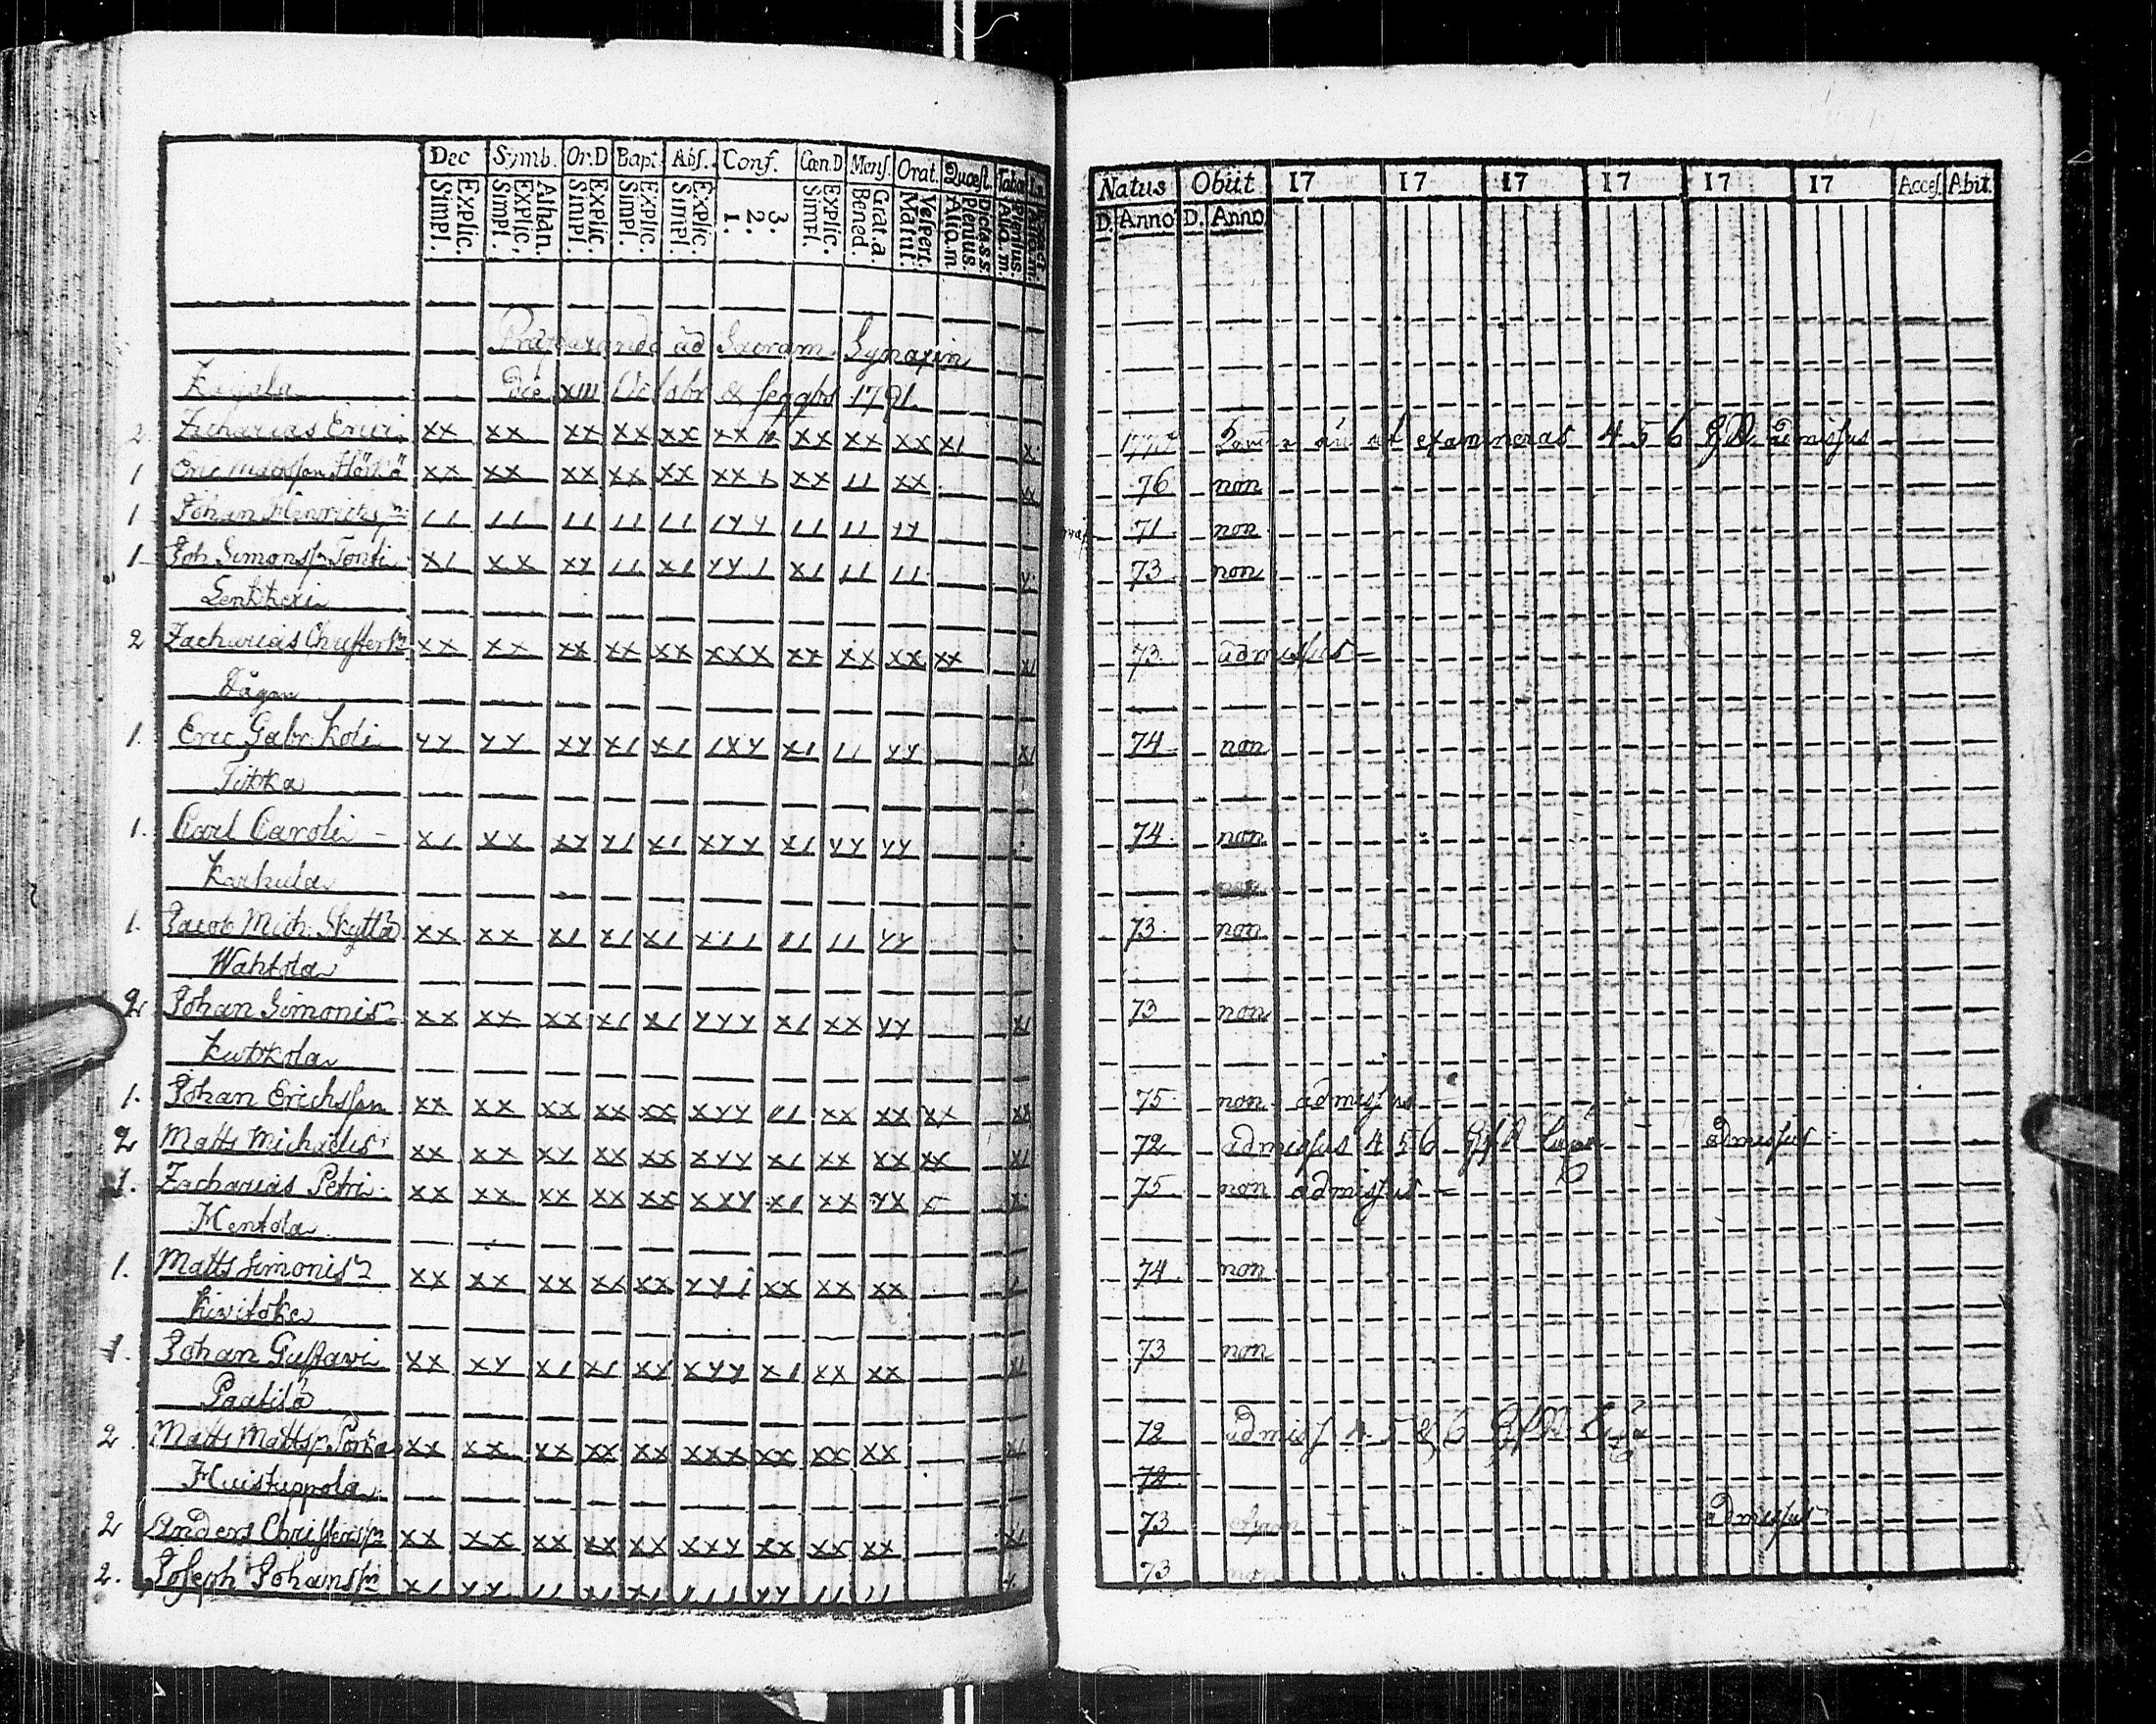 Dec Symb. Or.D Bapt. Abs. Conf. Cœn.D Mens. Orat. Quœst. Tabœ
Explic. Simpl. Athan. Explic. Simpl. Explic. Simpl. Explic. Simpl. Explic. Simpl. 3. 2. 1. Explic. Simpl. Grat.a. Bened. Vesper. Matut. Dicta s.s. Plenius. Aliq.m Plenius. Aliq.m.
Natus Obiit 17 17 17 17 17 17 Acces. Abit.
D. Anno D. Anno
Præparandi ad Sacram Synaxin
Die XIII Octobr & seqqbs 1791.
2. Zacharias Erici xx xx xx xx xx xx xx xx xx x1 4 5 6 admissus
1 Eric xx xx xx xx xx xx x xx 11 xx 76 non
1 Johan Henrichsn 11 11 11 11 11 1yy 11 11 yy 71 non
1 Joh Simonsn Tonti x1 xx xy 11 x1 yy1 x1 11 11 73 non
Lenkkeri
2 Zacharias Christersn xx xx xx xx xx xxx xx xx xx xx 73 admissus
Dågon
1. Eric Gabr. Koli yy yy xy x1 x1 1xy x1 11 yy x1 74 non
Tikka
1. Carl Caroli x1 xx xy y1 x1 xyy x1 yy yy 74 non
Karhula
1. Jacob Mich. Skyttä xx xx x1 x1 x1 x11 11 11 yy 73 non
Wahtola
2 Johan Simonis xx xx xx x1 x1 yyy x1 xx yy x1 73 non
Kukkola
1. Johan Erichsson xx xx xx xx xx xyy 11 xx xx xx xx 75 non admissus
2 Matts Michaelis xx xx xy xx xx xyy x1 xx xx xx x1 72 admissus 4 5 6 admissus
1. Zacharias Petri xx xx xx xx xx xxy x1 xx yx 75 non admissus
Hentola
1. Matts Simonis xx xx xx xx xx yy1 xx xx xx 74 non
Kivitoke
1. Johan Gustavi xx xy x1 x1 xy xyy x1 xx xx x1 73 non
Paatila
2. Matts Mattsn xx xx xx xx xx xxx xx xx xx x1 72 admiss 4 5 & 6
Huistuppola 72
2 Anders Christerssn xx xx xx xx xx xxy xx xx xx x1 73 admissus
2. Joseph Johanssn x1 yy 11 x1 x1 111 yy 11 11 73